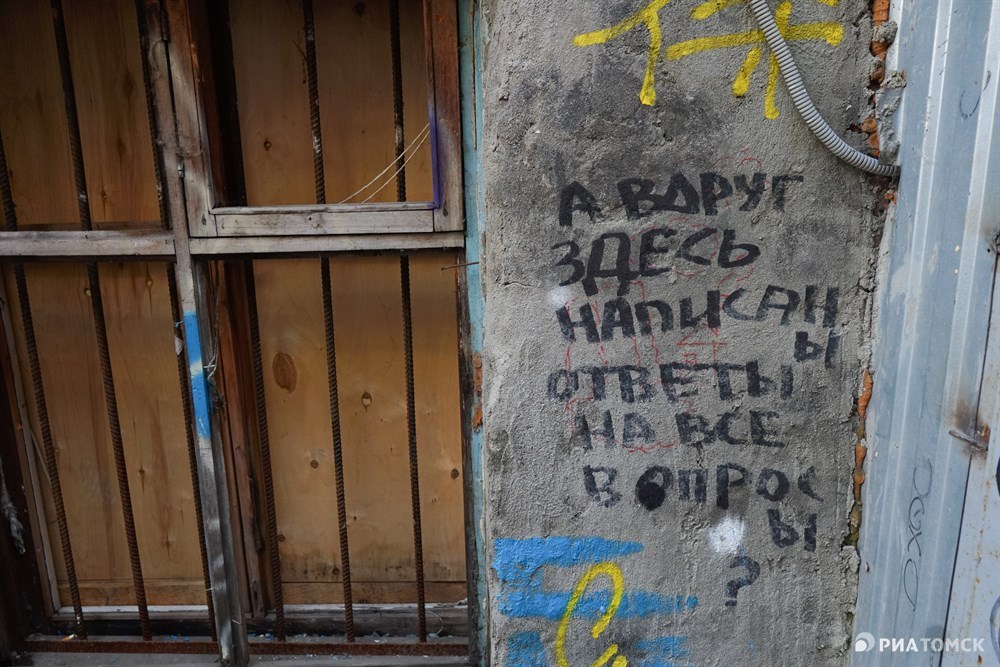 А ВДРУГ
ЗДЕСЬ
НАПИСАН
Ы
ОТВЕТЫ
НА ВСЕ
ВОПРОС
Ы
?
РИАТОМСК